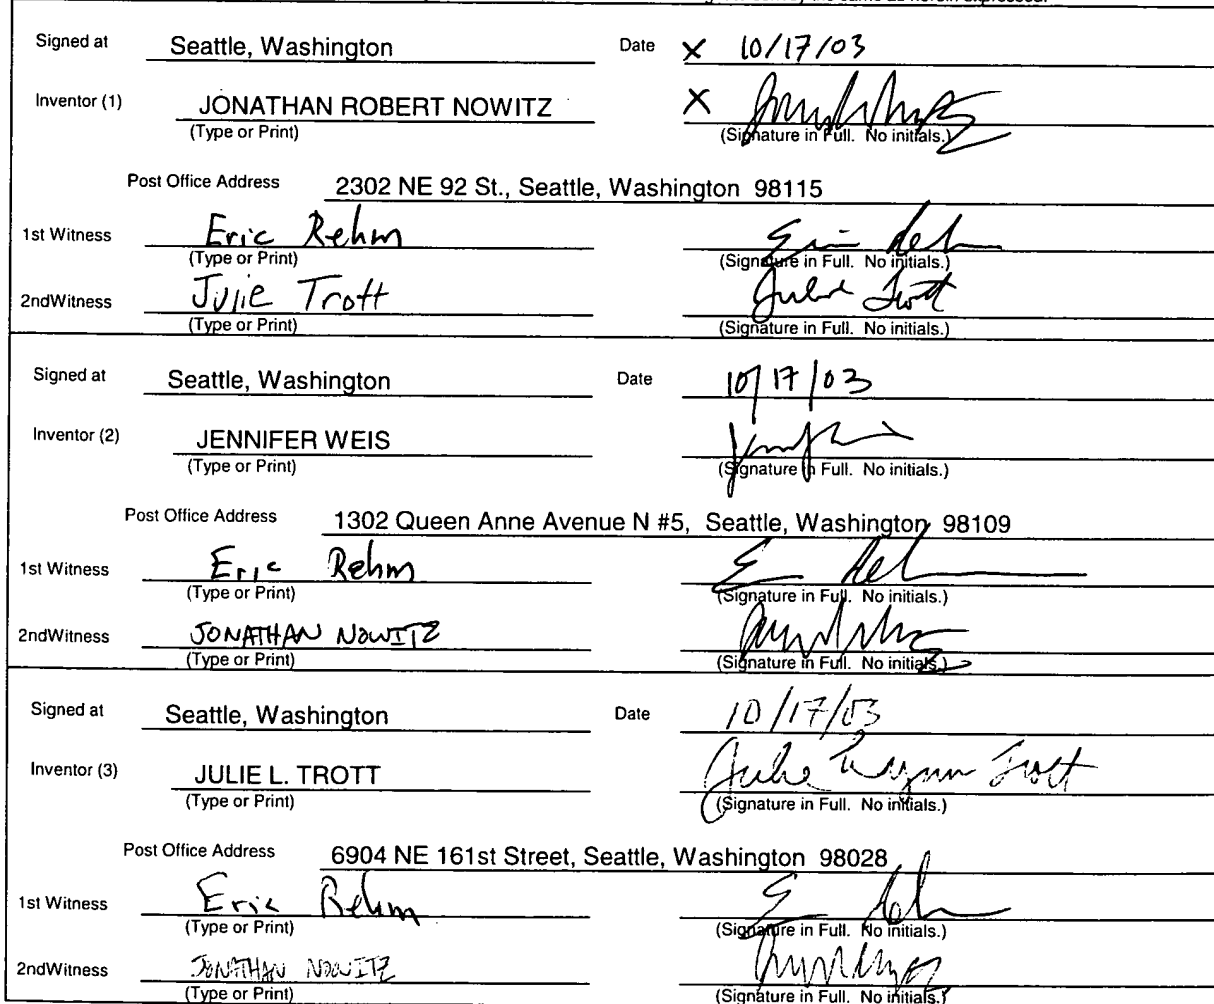 the same as herein expressed.
Signed at Seattle, Washington Date X 10/17/03
Inventor (1) JONATHAN ROBERT NOWITZ X
(Type or Print) (Signature in Full. No initials.)
Post Office Address 2302 NE 92 St., Seattle, Washington 98115
1st Witness Eric Rehm Eric Rehm
(Type or Print) (Signature in Full. No initials.)
2ndWitness Julie Trott Julie Trott
(Type or Print) (Signature in Full. No initials.)
Signed at Seattle, Washington Date 10/17/03
Inventor (2) JENNIFER WEIS
(Type or Print) (Signature in Full. No initials.)
Post Office Address 1302 Queen Anne Avenue N #5, Seattle, Washington 98109
1st Witness Eric Rehm E Rehm
(Type or Print) (Signature in Full. No initials.)
2ndWitness JONATHAN NOWITZ
(Type or Print) (Signature in Full. No initials.)
Signed at Seattle, Washington Date 10/17/03
Inventor (3) JULIE L. TROTT Julie Lynn Trott
(Type or Print) (Signature in Full. No initials.)
Post Office Address 6904 NE 161st Street, Seattle, Washington 98028
1st Witness Eric Rehm E Rehm
(Type or Print) (Signature in Full. No initials.)
2ndWitness JONATHAN NOWITZ
(Type or Print) (Signature in Full. No initials.)